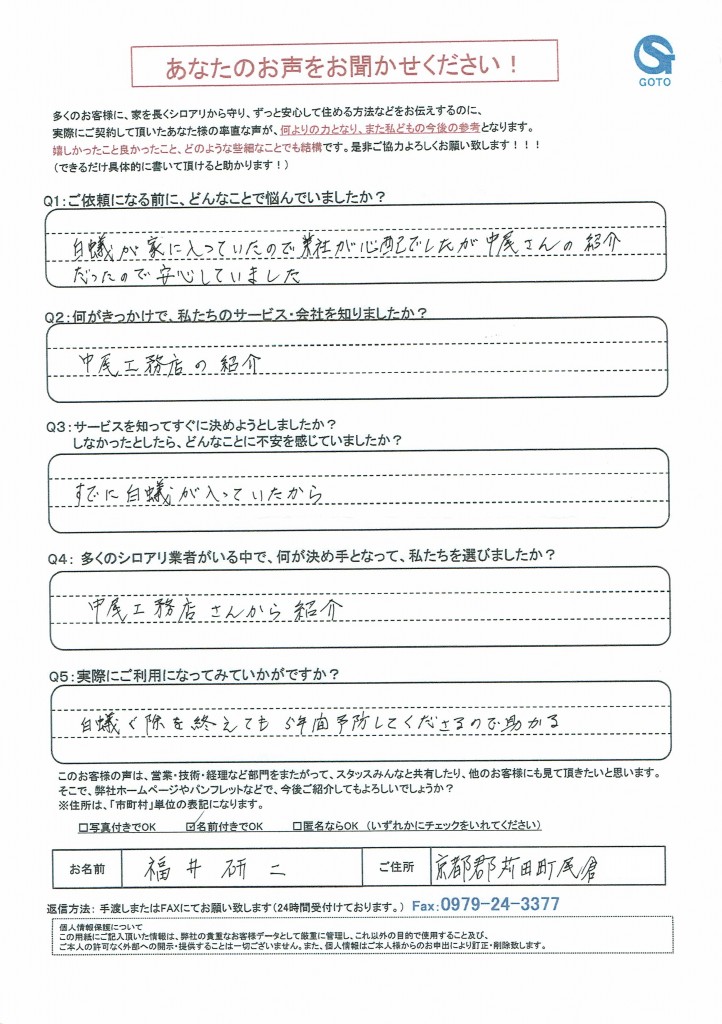 あなたのお声をお聞かせください！
GOTO
多くのお客様に、家を長くシロアリから守り、ずっと安心して住める方法などをお伝えするのに、
実際にご契約して頂いたあなた様の率直な声が、何よりの力となり、また私どもの今後の参考となります。
嬉しかったこと良かったこと、どのような些細なことでも結構です。是非ご協力よろしくお願い致します！！！
（できるだけ具体的に書いて頂けると助かります！）
Q1：ご依頼になる前に、どんなことで悩んでいましたか？
白蟻が家に入っていたので業社が心配でしたが中尾さんの紹介
だったので安心していました
Q2：何がきっかけで、私たちのサービス・会社を知りましたか？
中尾工務店の紹介
Q3：サービスを知ってすぐに決めようとしましたか？
しなかったとしたら、どんなことに不安を感じていましたか？
すでに白蟻が入っていたから
Q4： 多くのシロアリ業者がいる中で、何が決め手となって、私たちを選びましたか？
中尾工務店さんから紹介
Q5：実際にご利用になってみていかがですか？
白蟻く除を終えても5年間予防してくださるので助かる
このお客様の声は、営業・技術・経理など部門をまたがって、スタッスみんなと共有したり、他のお客様にも見て頂きたいと思います。
そこで、弊社ホームページやパンフレットなどで、今後ご紹介してもよろしいでしょうか？
※住所は、「市町村」単位の表記になります。
□写真付きでOK ☑名前付きでOK □匿名ならOK （いずれかにチェックをいれてください）
お名前 福井研二 ご住所 京都郡苅田町尾倉
返信方法： 手渡しまたはFAXにてお願い致します（24時間受付けております。） Fax：0979-24-3377
個人情報保護について
この用紙にご記入頂いた情報は、弊社の貴重なお客様データとして厳重に管理し、これ以外の目的で使用すること及び、
ご本人の許可なく外部への開示・提供することは一切ございません。また、個人情報はご本人様からのお申出により訂正・削除致します。